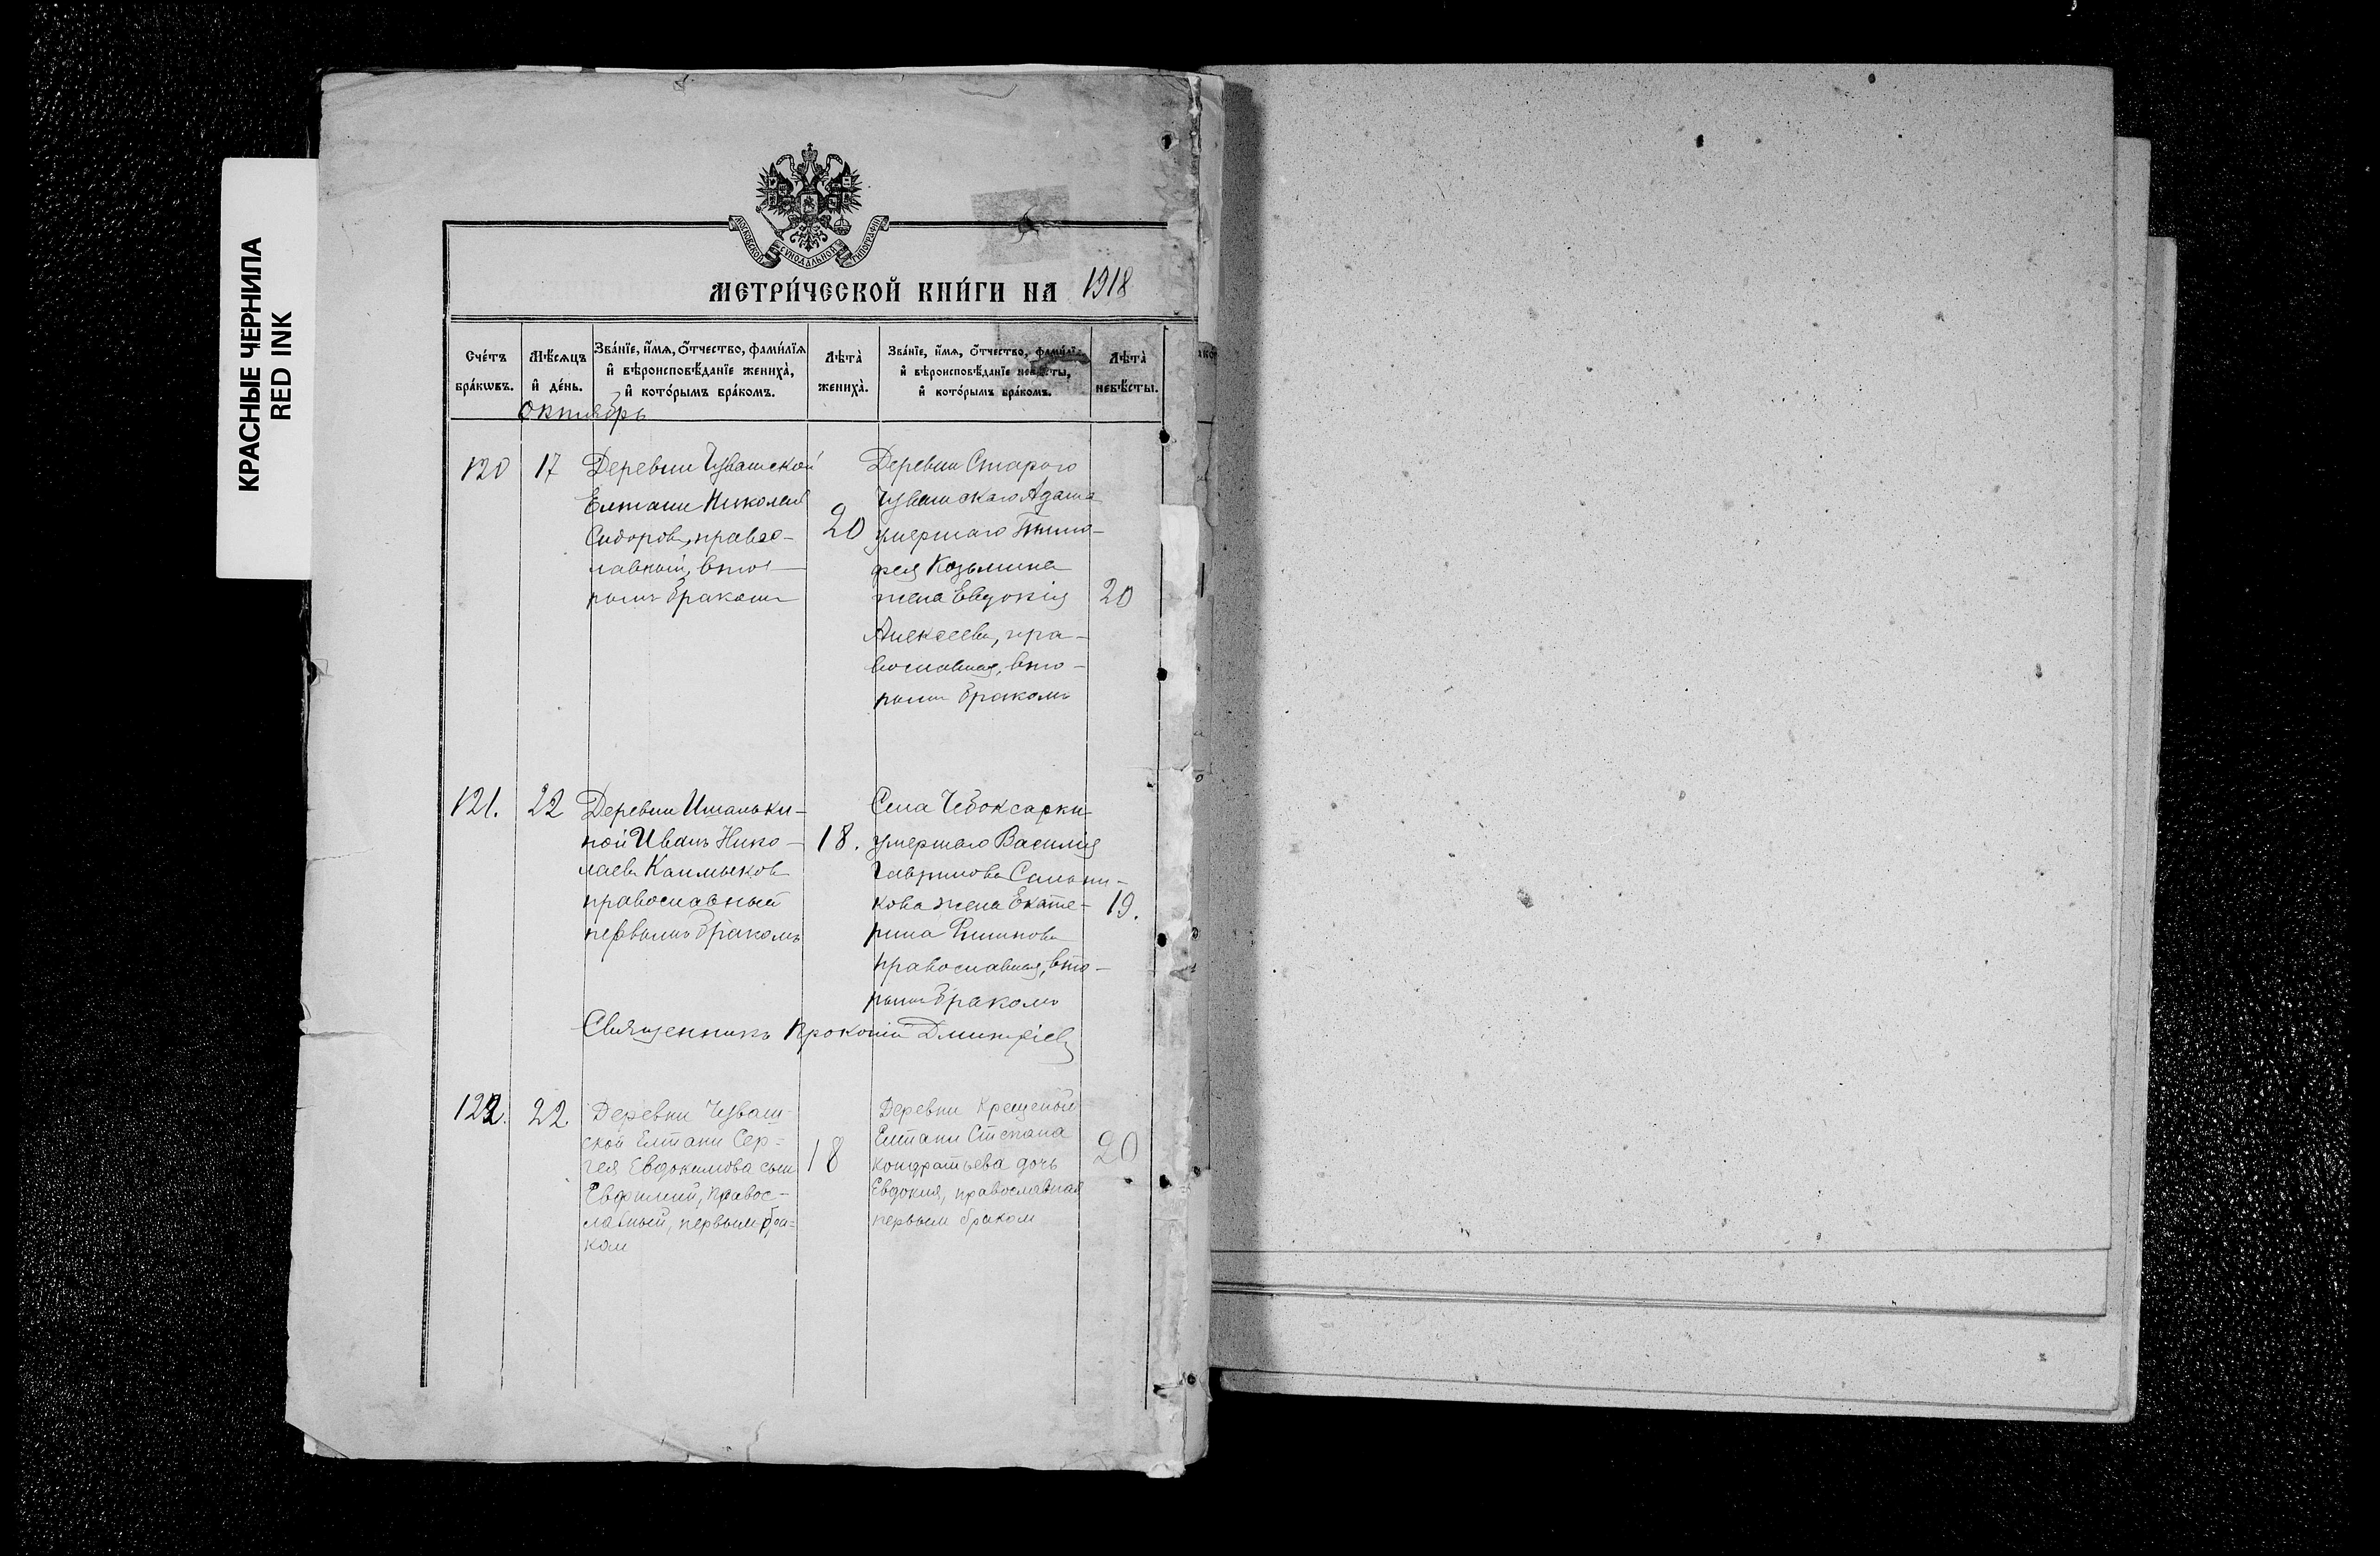 КРАСНЫЕ ЧЕРНИЛА
RED INK
МОСКОВСКОЙ СѴНОДАЛЬНОЙ ТИПОГРАФІИ
МЕТРИ́ЧЕСКОЙ КНИ́ГИ НА 1918
Сче́тъ бра́кѡвъ.
Мѣ́сяцъ и҆ де́нь.
Зва́нїе, и҆́мѧ, ѻ҆́тчество, фами́лїѧ и҆ вѣроисповѣ́данїе жениха̀, и҆ кото́рымъ бра́комъ.
Лѣта̀ жениха̀.
Зва́нїе, и҆́мѧ, ѻ҆́тчество, фами́лїѧ и҆ вѣроисповѣ́данїе невѣ́сты, и҆ кото́рымъ бра́комъ.
Лѣта̀ невѣ́сты.
Октябрь
120
17
Деревни Чувашской
Елтани Николай
Сидоровъ, правос-
лавный, вто-
рымъ бракомъ
20
Деревни Старого
Чувашскаго Адама
умершаго Тимо-
фея Козьмина
жена Евдокія
Алексеева, пра-
вославная, вто-
рымъ бракомъ
20
121.
22
Деревни Иманьки-
ной Иванъ Нико-
лаевъ Калмыковъ
православный
первымъ бракомъ
18.
Села Чебоксарки
умершаго Василія
Гаврилова Сальни-
кова жена Екате-
рина Филипова
православная, вто-
рымъ бракомъ
19.
Священникъ Прокопій Дмитріевъ
122.
22.
Деревни Чуваш-
ской Елтани Сер-
гея Евдокимова сын
Евфимий, правос-
лавный, первым бра-
ком
18
Деревни Крещеной
Елтани Степана
Кондратьева дочь
Евдокия, православная
первым браком
20